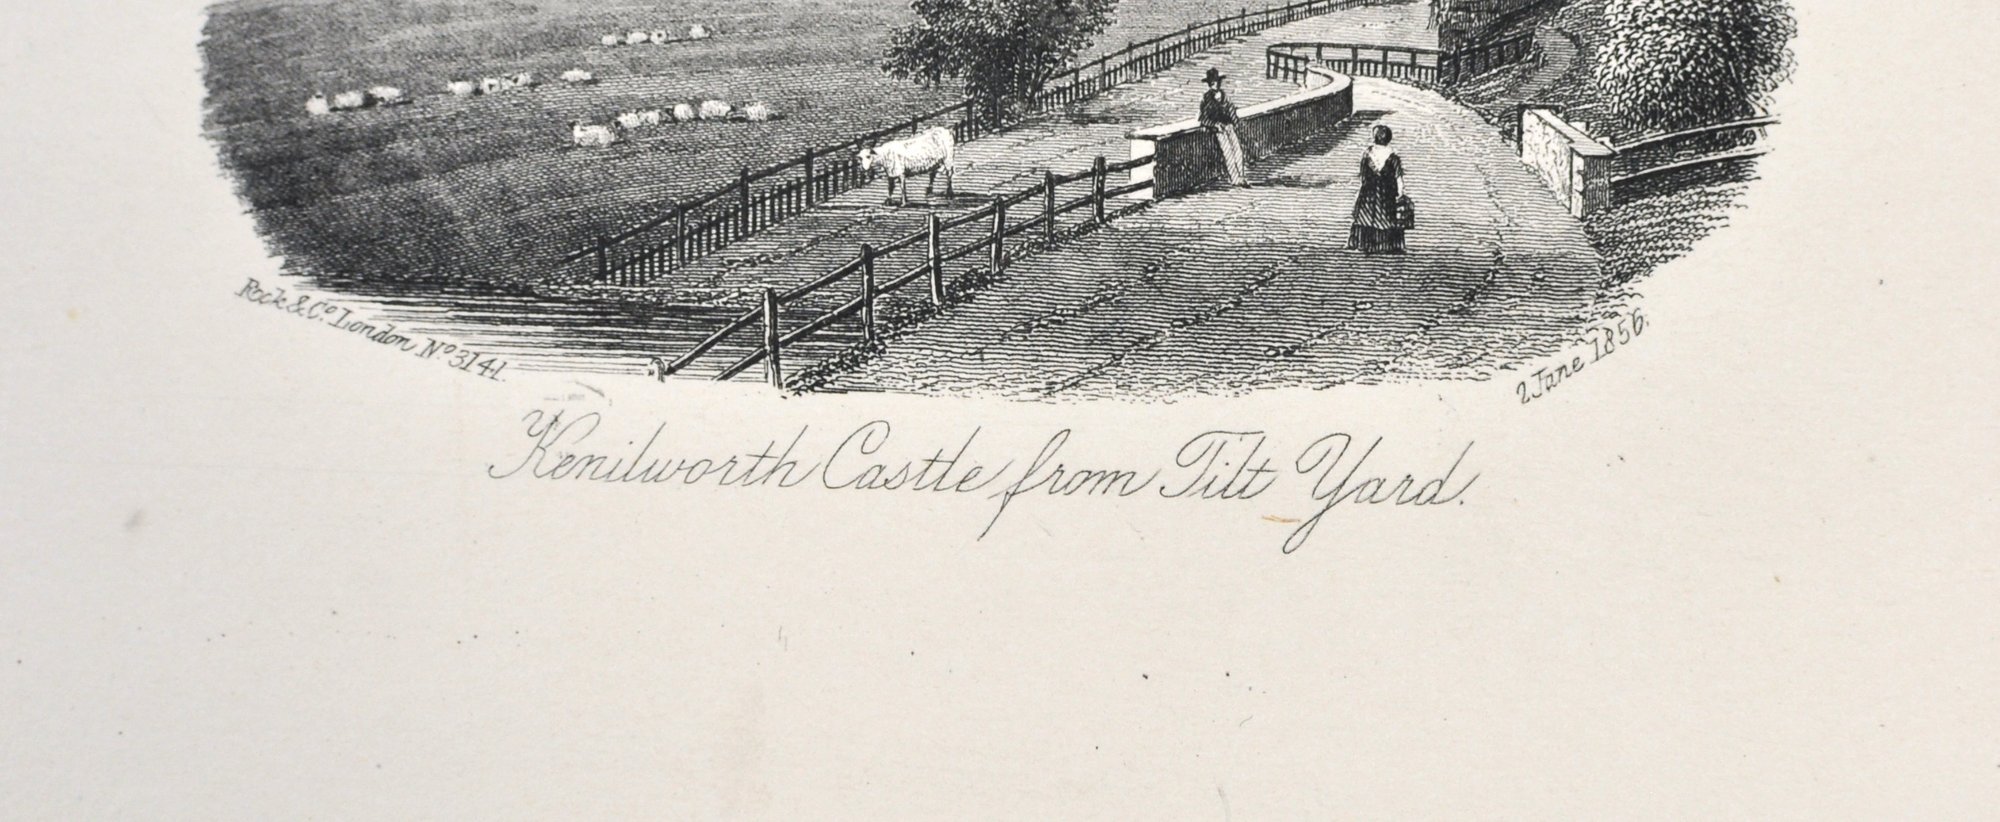 Rock & Co. London No. 3141.
2 June 1856.
Kenilworth Castle from Tilt Yard.